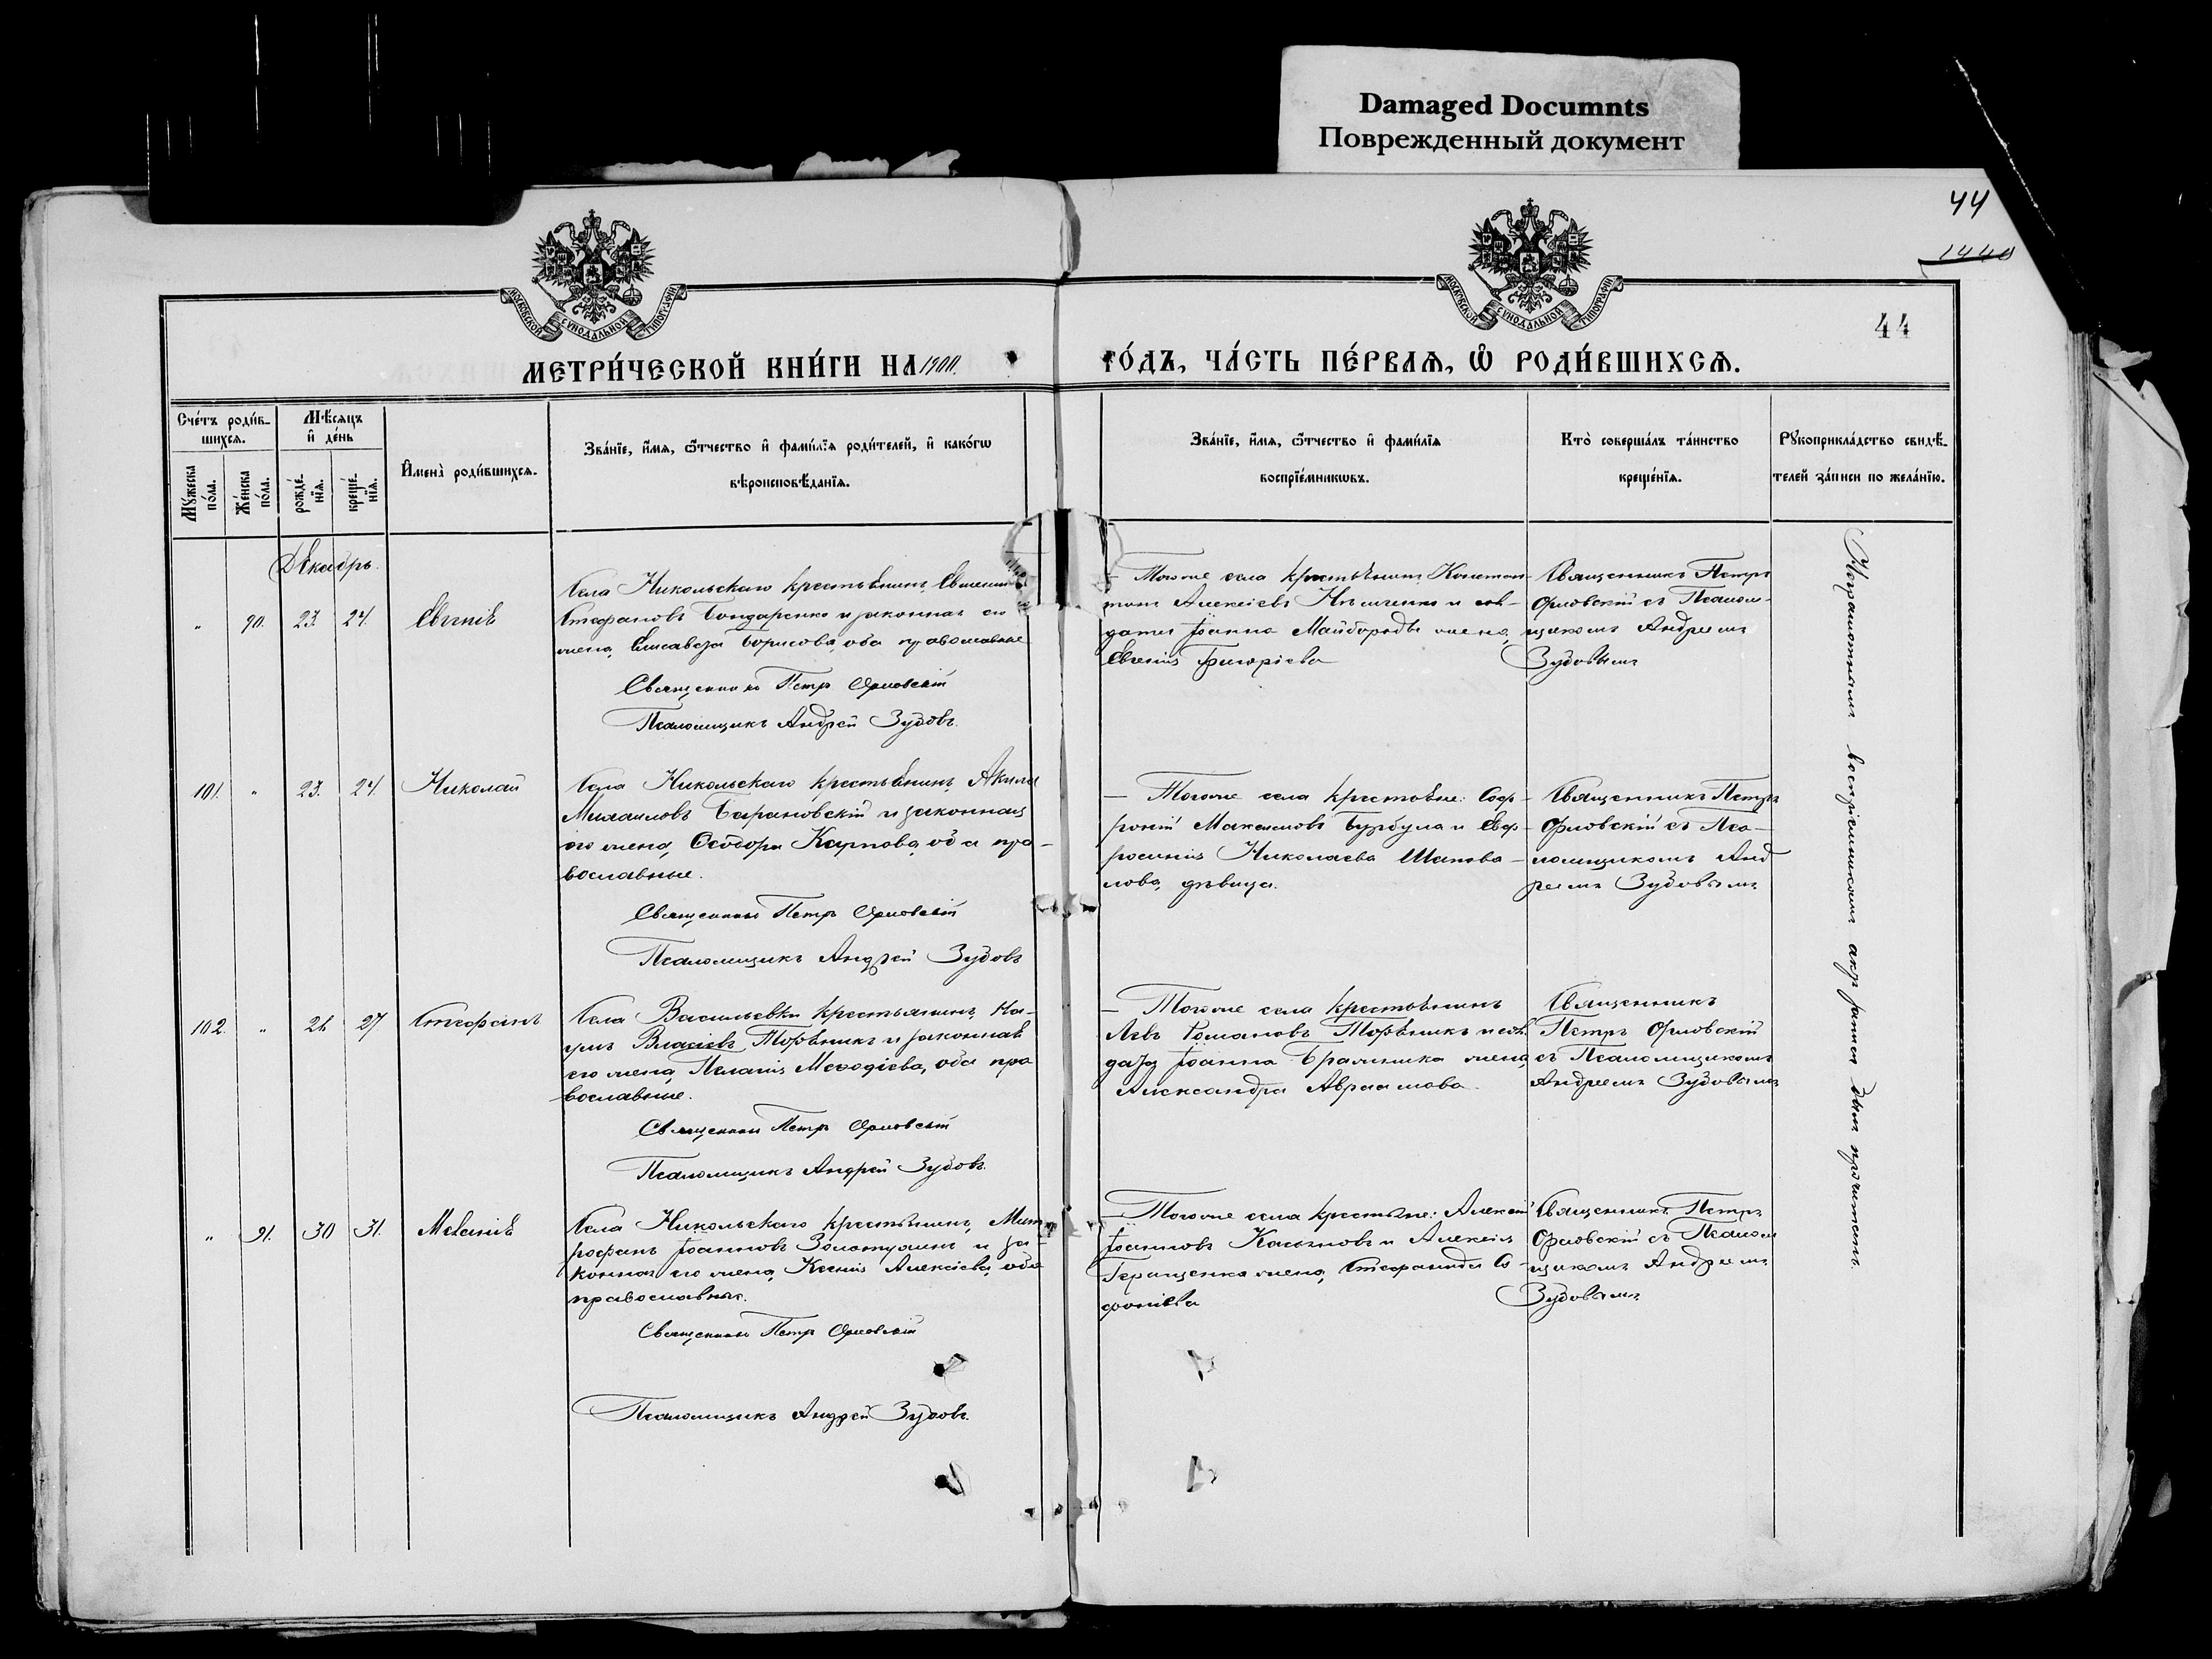 Damaged Documnts
Поврежденный документ
44
1440
44
МОСКОВСКОЙ СУНОДАЛЬНОЙ ТИПОГРАФІИ
МОСКОВСКОЙ СУНОДАЛЬНОЙ ТИПОГРАФІИ
МЕТРИ́ЧЕСКОЙ КНИ́ГИ НА 1900.
ГО́ДЪ, ЧА́СТЬ ПЕ́РВАѦ, Ѡ РОДИ́ВШИХСѦ.
Сче́тъ роди́в-
шихсѧ.
Мѣ́сѧцъ
и де́нь
Му́жеска
по́ла.
Же́нска
по́ла.
рожде́-
нїѧ.
креще́-
нїѧ.
Имена̀ роди́вшихсѧ.
Зва́нїе, и́мѧ, ѻ́тчество и фами́лїѧ роди́телей, и како́гѡ
вѣроисповѣ́данїѧ.
Зва́нїе, и́мѧ, ѻ́тчество и фами́лїѧ
воспрїе́мникѡвъ.
Кто̀ соверша́лъ та́инство
креще́нїѧ.
Рꙋкоприкла́дство свидѣ́-
телей за́писи по жела́нїю.
Декабрь.
" 90. 23. 24. Евгенія
Села Никольскаго крестьянинъ, Евгеній
Стефановъ Бондаренко и законная его
жена, Елисавета Борисова, оба православные
Священникъ Петръ Орловскій
Псаломщикъ Андрей Зубовъ.
— Того же села крестьянинъ Констан-
тинъ Алексіевъ Ильченко и сол-
дата Іоанна Майбороды жена,
Евгенія Григоріева
Священникъ Петръ
Орловскій съ Псалом-
щикомъ Андреемъ
Зубовымъ
101. " 23. 24. Николай
Села Никольскаго крестьянинъ, Акила
Михаиловъ Барановскій и законная
его жена, Ѳеодора Карпова, оба пра-
вославные.
Священникъ Петръ Орловскій
Псаломщикъ Андрей Зубовъ
— Того же села крестьяне: Соф-
роній Максимовъ Бурбула и Евф-
росинія Николаева Шапова-
лова, дѣвица.
Священникъ Петръ
Орловскій съ Пса-
ломщикомъ Анд
реемъ Зубовымъ
102. " 26 27 Стефанъ
Села Васильевки крестьянинъ, На-
умъ Власіевъ Торяникъ и законная
его жена, Пелагія Меѳодіева, оба пра
вославные.
Священникъ Петръ Орловскій
Псаломщикъ Андрей Зубовъ
— Того же села крестьянинъ
Левъ Романовъ Торяникъ и сол.
дата Іоанна Бражника жена,
Александра Авраамова.
Священникъ
Петръ Орловскій
съ Псаломщикомъ
Андреемъ Зубовымъ
" 91. 30 31. Меланія
Села Никольскаго крестьянинъ, Мит
рофанъ Іоанновъ Золотухинъ и за-
конная его жена, Ксенія Алексіева, оба
православные.
Священникъ Петръ Орловскій
Псаломщикъ Андрей Зубовъ.
— Того же села крестьяне: Алексій
Іоанновъ Касьяновъ и Алексія
Геращенка жена, Стефанида Аг-
фоніева
Священникъ Петръ
Орловскій съ Псалом
щикомъ Андреемъ
Зубовымъ
Неграмотнымъ воспріемникамъ актъ записи былъ прочитанъ.